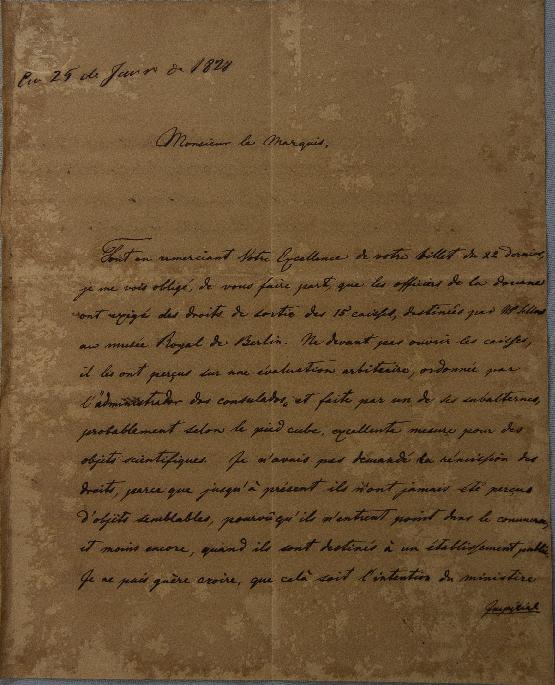 de 1824
Monsieur le Marquis,
Tout en remerciant Votre Excellence de votre billet du 22 dernier,
je me vois obligé, de vous faire part, que les officiers de la douane
ont exigé des droits de sortie des 15 caisses, destinées par
au musée Royal de Berlin. Ne devant pas ouvrir les caisses,
il les ont perçus sur une évaluation arbitraire, ordonnée par
l'administrador dos consulados, et faite par un de ses subalternes,
probablement selon le pied cube, excellente mesure pour des
objets scientifiques. Je n'avais pas demandé la rémission des
droits, parce que jusqu'à présent ils n'ont jamais été perçus
d'objets semblables, pourvû qu'ils n'entrent point dans le commerce,
et moins encore, quand ils sont destinés à un établissement public.
Je ne puis guère croire, que celà soit l'intention du ministère
Impérial